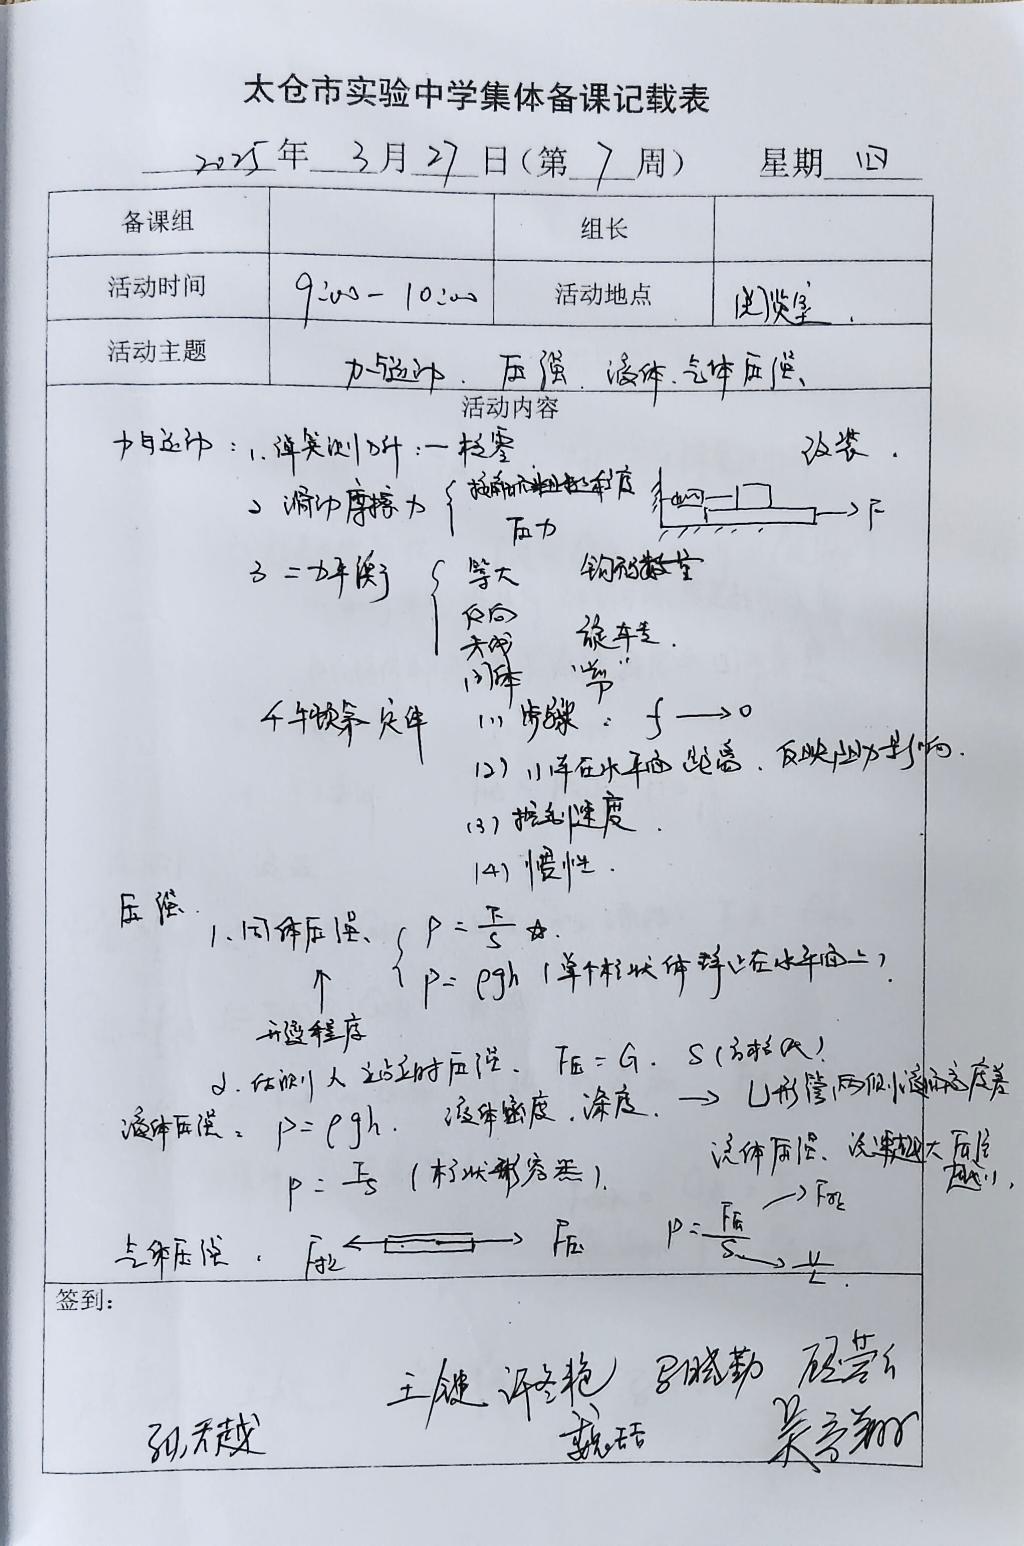 太仓市实验中学集体备课记载表
2025年 3月27日(第 7 周) 星期 四
备课组 组长
活动时间 9:00-10:00 活动地点 阅览室.
活动主题 力与运动. 压强. 液体.气体压强.
活动内容
力与运动: 1. 弹簧测力计: 一 校零 改装.
2 滑动摩擦力 接触面粗糙程度
压力 F
3 二力平衡 等大 钩码数量
反向
共线 旋车走.
同体 "剪"
4 牛顿第一定律 (1) 步骤: f → 0
(2) 小车在水平面 距离. 反映阻力影响.
(3) 控制速度.
(4) 惯性.
压强.
1. 固体压强. p = F/S ☆.
p = ρgh (单个柱状体静止在水平面上).
↑
形变程度
2. 估测人站立时压强. F压 = G. S(方格代)
液体压强: p = ρgh. 液体密度.深度. → U形管两侧液面高度差
流体压强. 流速越大压强越小.
p = F/S (柱状形容器).
气体压强. F拉 F压 p = F压/S → F拉
→ V/L.
签到:
王健 许冬艳
魏